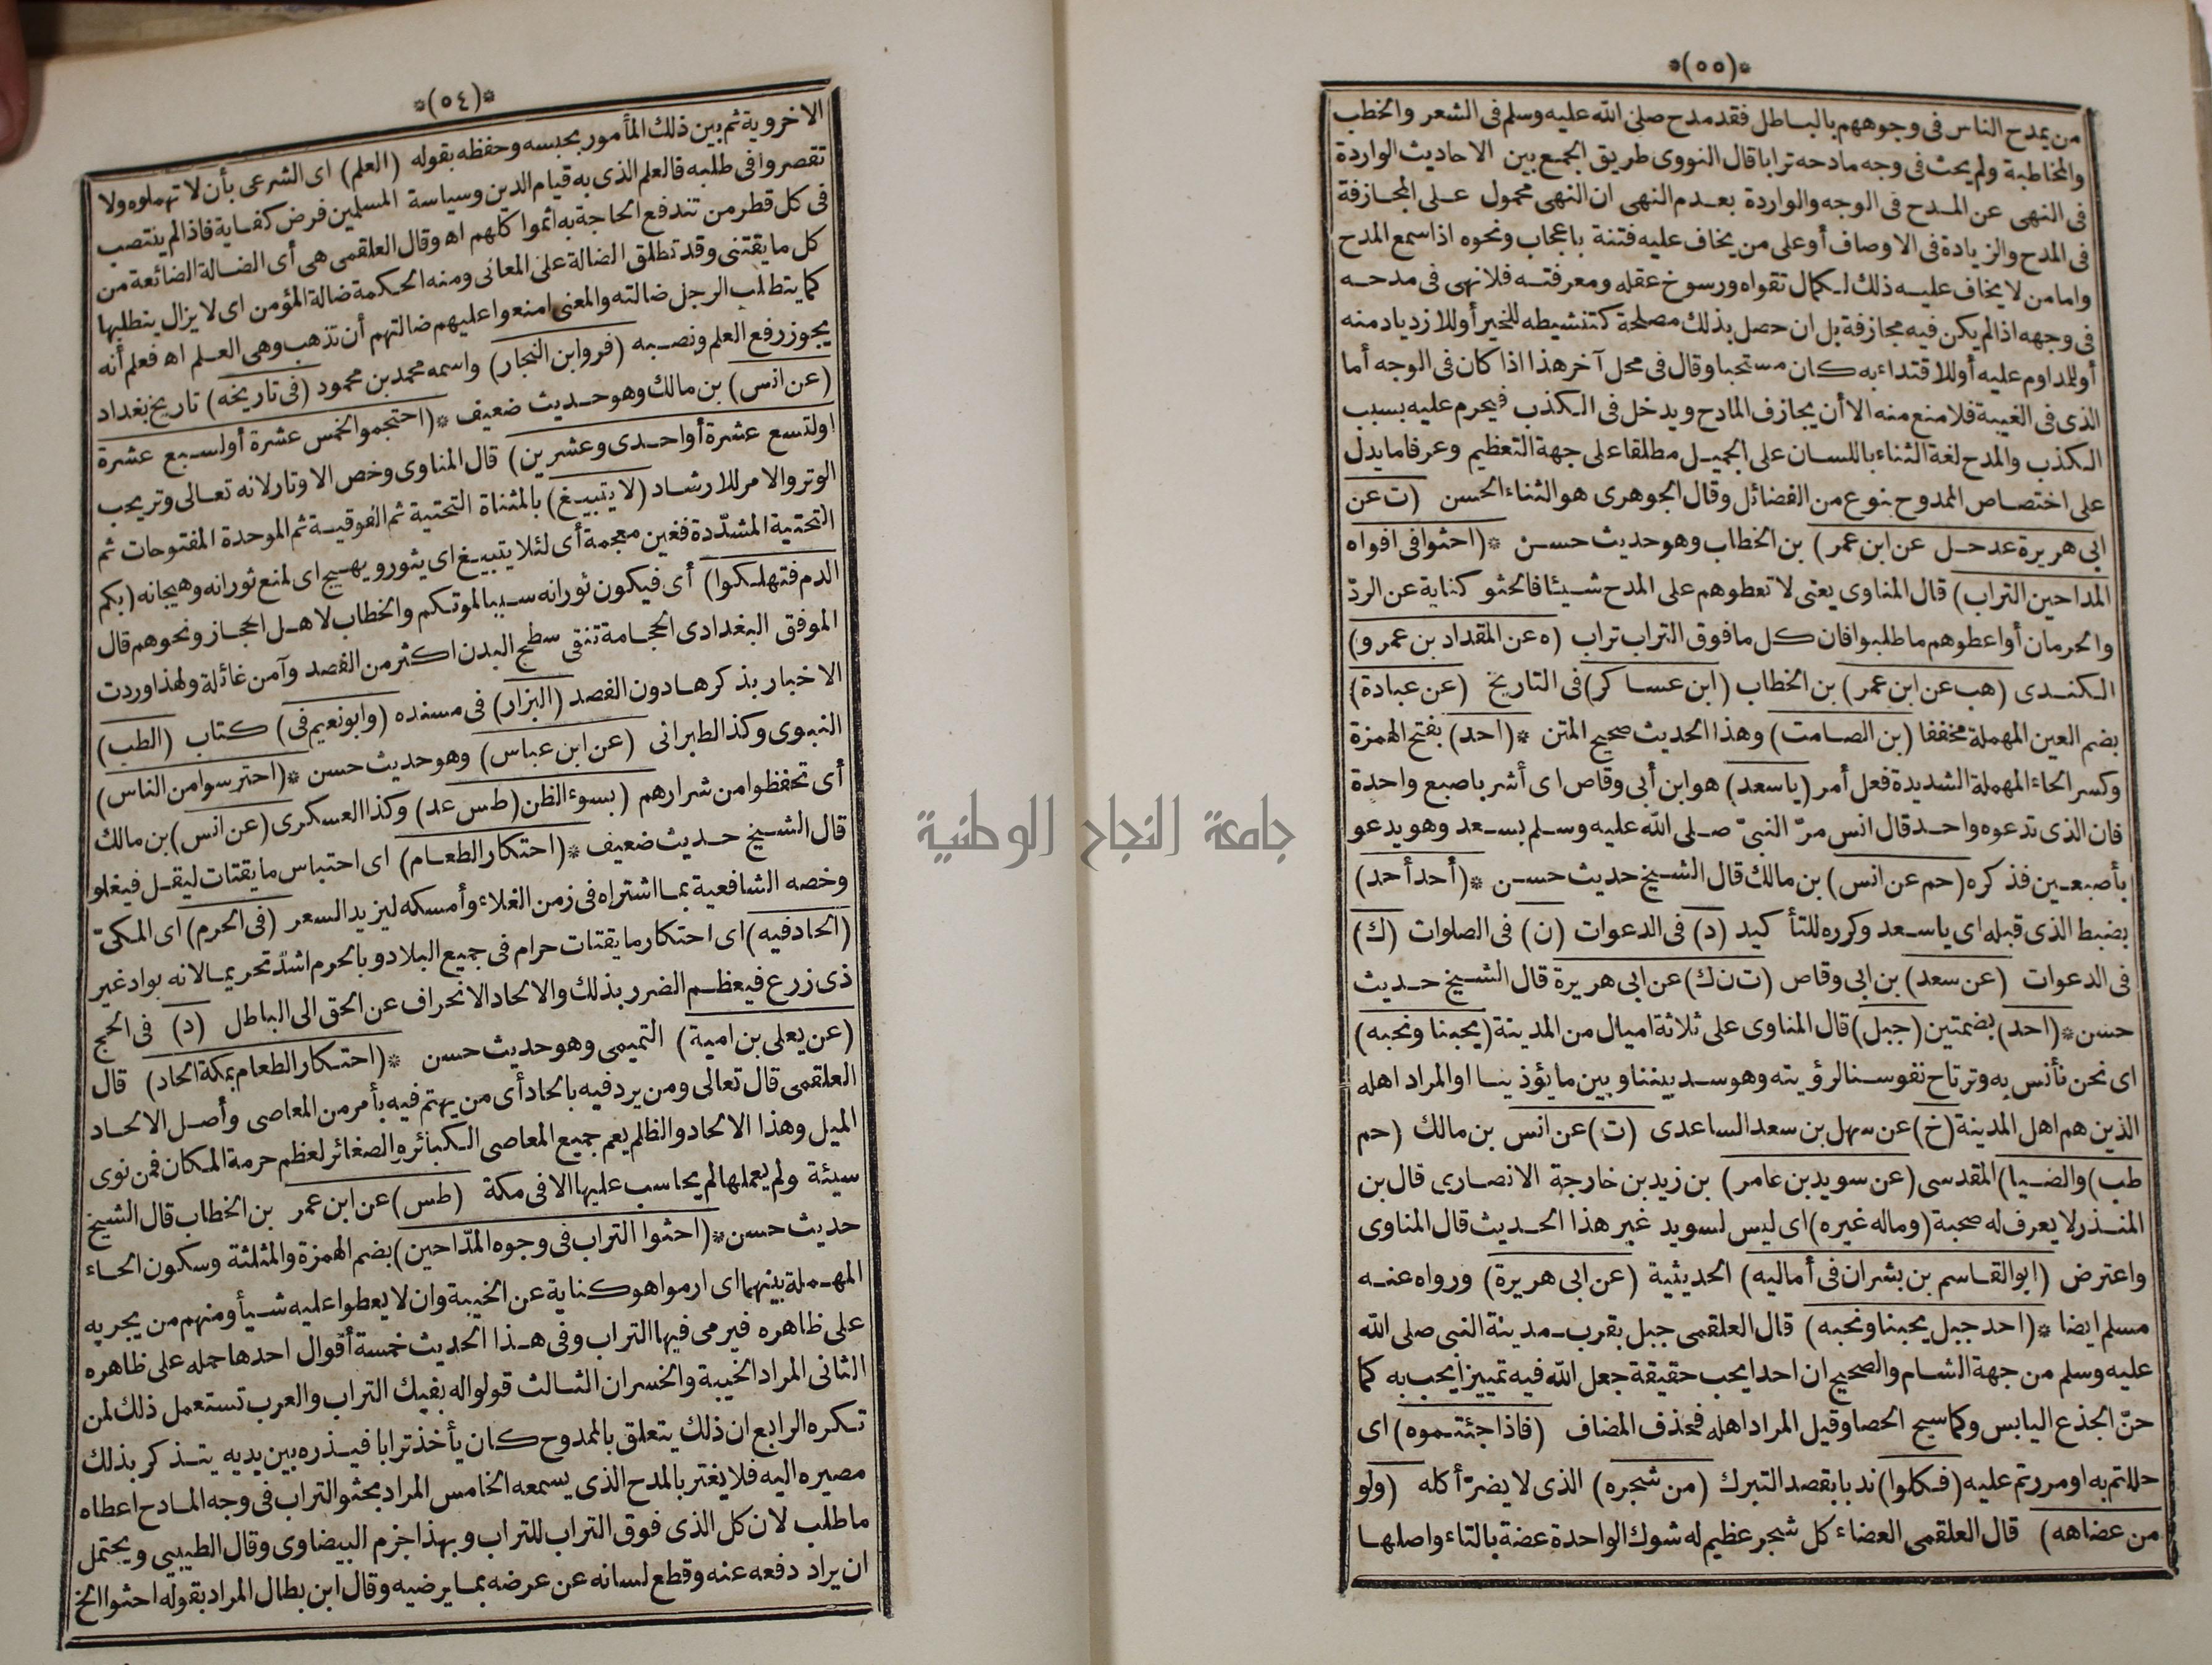 *(٥٤)*
الاخروية ثم بين ذلك المأمور بحبسه وحفظه بقوله (العلم) اى الشرعى بأن لا تهملوه ولا
تقصروا فى طلبه فالعلم الذى به قيام الدين وسياسة المسلمين فرض كفاية فاذا لم ينتصب
فى كل قطر من تندفع الحاجة به اثموا كلهم اه وقال العلقمى هى أى الضالة الضائعة من
كل ما يقتنى وقد تطلق الضالة على المعانى ومنه الحكمة ضالة المؤمن اى لا يزال يتطلبها
كما يتطلب الرجل ضالته والمعنى امنعوا عليهم ضالتهم أن تذهب وهى العلم اه فعلم أنه
يجوز رفع العلم ونصبه (فر وابن النجار) واسمه محمد بن محمود (فى تاريخه) تاريخ بغداد
(عن انس) بن مالك وهو حديث ضعيف *(احتجموا لخمس عشرة أولسبع عشرة
اولتسع عشرة أواحدى وعشرين) قال المناوى وخص الاوتار لانه تعالى وتر يحب
الوتر والامر للارشاد (لا يتبيغ) بالمثناة التحتية ثم الفوقية ثم الموحدة المفتوحات ثم
التحتية المشدّدة فغين معجمة أى لئلا يتبيغ اى يثور ويهيج اى لمنع ثورانه وهيجانه (بكم
الدم فتهلكوا) أى فيكون ثورانه سببا لموتكم والخطاب لاهل الحجاز ونحوهم قال
الموفق البغدادى الحجامة تنقى سطح البدن اكثر من الفصد وآمن غائلة ولهذا وردت
الاخبار بذكرها دون الفصد (البزار) فى مسنده (وابو نعيم فى) كتاب (الطب)
النبوى وكذا الطبرانى (عن ابن عباس) وهو حديث حسن *(احترسوا من الناس)
أى تحفظوا من شرارهم (بسوء الظن (طس عد) وكذا العسكرى (عن انس) بن مالك
قال الشيخ حديث ضعيف *(احتكار الطعام) اى احتباس ما يقتات ليقل فيغلو
وخصه الشافعية بما اشتراه فى زمن الغلاء وأمسكه ليزيد السعر (فى الحرم) اى المكىّ
(الحاد فيه) اى احتكار ما يقتات حرام فى جميع البلاد وبالحرم اشدّ تحريما لانه بواد غير
ذى زرع فيعظم الضرر بذلك والالحاد الانحراف عن الحق الى الباطل (د) فى الحج
(عن يعلى بن امية) التميمى وهو حديث حسن *(احتكار الطعام بمكة الحاد) قال
العلقمى قال تعالى ومن يرد فيه بالحاد أى من يهتم فيه بأمر من المعاصى وأصل الالحاد
الميل وهذا الالحاد والظلم يعم جميع المعاصى الكبائر والصغائر لعظم حرمة المكان فمن نوى
سيئة ولم يعملها لم يحاسب عليها الا فى مكة (طس) عن ابن عمر بن الخطاب قال الشيخ
حديث حسن *(احثوا التراب فى وجوه المدّاحين) بضم الهمزة والمثلثة وسكون الحاء
المهملة بينهما اى ارموا هو كناية عن الخيبة وان لا يعطوا عليه شيأ ومنهم من يجريه
على ظاهره فيرمى فيها التراب وفى هذا الحديث خمسة أقوال احدها حمله على ظاهره
الثانى المراد الخيبة والخسران الثالث قولوا له بفيك التراب والعرب تستعمل ذلك لمن
تكره الرابع ان ذلك يتعلق بالممدوح كان يأخذ ترابا فيذره بين يديه يتذكر بذلك
مصيره اليه فلا يغتر بالمدح الذى يسمعه الخامس المراد بحثو التراب فى وجه المادح اعطاه
ما طلب لان كل الذى فوق التراب للتراب وبهذا جزم البيضاوى وقال الطيبى ويحتمل
ان يراد دفعه عنه وقطع لسانه عن عرضه بما يرضيه وقال ابن بطال المراد بقوله احثوا الخ
*(٥٥)*
من يمدح الناس فى وجوههم بالباطل فقد مدح صلى الله عليه وسلم فى الشعر والخطب
والمخاطبة ولم يحث فى وجه مادحه ترابا قال النووى طريق الجمع بين الاحاديث الواردة
فى النهى عن المدح فى الوجه والواردة بعدم النهى ان النهى محمول على المجازفة
فى المدح والزيادة فى الاوصاف أو على من يخاف عليه فتنة باعجاب ونحوه اذا سمع المدح
واما من لا يخاف عليه ذلك لكمال تقواه ورسوخ عقله ومعرفته فلا نهى فى مدحه
فى وجهه اذا لم يكن فيه مجازفة بل ان حصل بذلك مصلحة كتنشيطه للخير أو للازدياد منه
أو للمداوم عليه أو للاقتداء به كان مستحبا وقال فى محل آخر هذا اذا كان فى الوجه أما
الذى فى الغيبة فلا منع منه الا أن يجازف المادح ويدخل فى الكذب فيحرم عليه بسبب
الكذب والمدح لغة الثناء باللسان على الجميل مطلقا على جهة التعظيم وعرفا ما يدل
على اختصاص الممدوح بنوع من الفضائل وقال الجوهرى هو الثناء الحسن (ت عن
ابى هريرة عد حل عن ابن عمر) بن الخطاب وهو حديث حسن *(احثوا فى افواه
المداحين التراب) قال المناوى يعنى لا تعطوهم على المدح شيئا فالحثو كناية عن الردّ
والحرمان أو اعطوهم ما طلبوا فان كل ما فوق التراب تراب (ه عن المقداد بن عمرو)
الكندى (هب عن ابن عمر) بن الخطاب (ابن عساكر) فى التاريخ (عن عبادة)
بضم العين المهملة مخففا (بن الصامت) وهذا الحديث صحيح المتن *(احد) بفتح الهمزة
وكسر الحاء المهملة الشديدة فعل أمر (يا سعد) هو ابن أبى وقاص اى أشر باصبع واحدة
فان الذى تدعوه واحد قال انس مرّ النبىّ صلى الله عليه وسلم بسعد وهو يدعو
بأصبعين فذكره (حم عن انس) بن مالك قال الشيخ حديث حسن *(أحد أحد)
بضبط الذى قبله اى يا سعد وكرره للتأكيد (د) فى الدعوات (ن) فى الصلوات (ك)
فى الدعوات (عن سعد) بن ابى وقاص (ت ن ك) عن ابى هريرة قال الشيخ حديث
حسن *(احد) بضمتين (جبل) قال المناوى على ثلاثة اميال من المدينة (يحبنا ونحبه)
اى نحن نأنس به وترتاح نفوسنا لرؤيته وهو سد بيننا وبين ما يؤذينا او المراد اهله
الذين هم اهل المدينة (خ) عن سهل بن سعد الساعدى (ت) عن انس بن مالك (حم
طب) والضيا) المقدسى (عن سويد بن عامر) بن زيد بن خارجة الانصارى قال بن
المنذر لا يعرف له صحبة (وماله غيره) اى ليس لسويد غير هذا الحديث قال المناوى
واعترض (ابو القاسم بن بشران فى أماليه) الحديثية (عن ابى هريرة) ورواه عنه
مسلم ايضا *(احد جبل يحبنا ونحبه) قال العلقمى جبل بقرب مدينة النبى صلى الله
عليه وسلم من جهة الشام والصحيح ان احدا يحب حقيقة جعل الله فيه تمييزا يحب به كما
حنّ الجذع اليابس وكما سبح الحصا وقيل المراد اهله فحذف المضاف (فاذا جئتموه) اى
حللتم به او مررتم عليه (فكلوا) ندبا بقصد التبرك (من شجره) الذى لا يضرّ أكله (ولو
من عضاهه) قال العلقمى العضاء كل شجر عظيم له شوك الواحدة عضة بالتاء واصلها
جامعة النجاح الوطنية